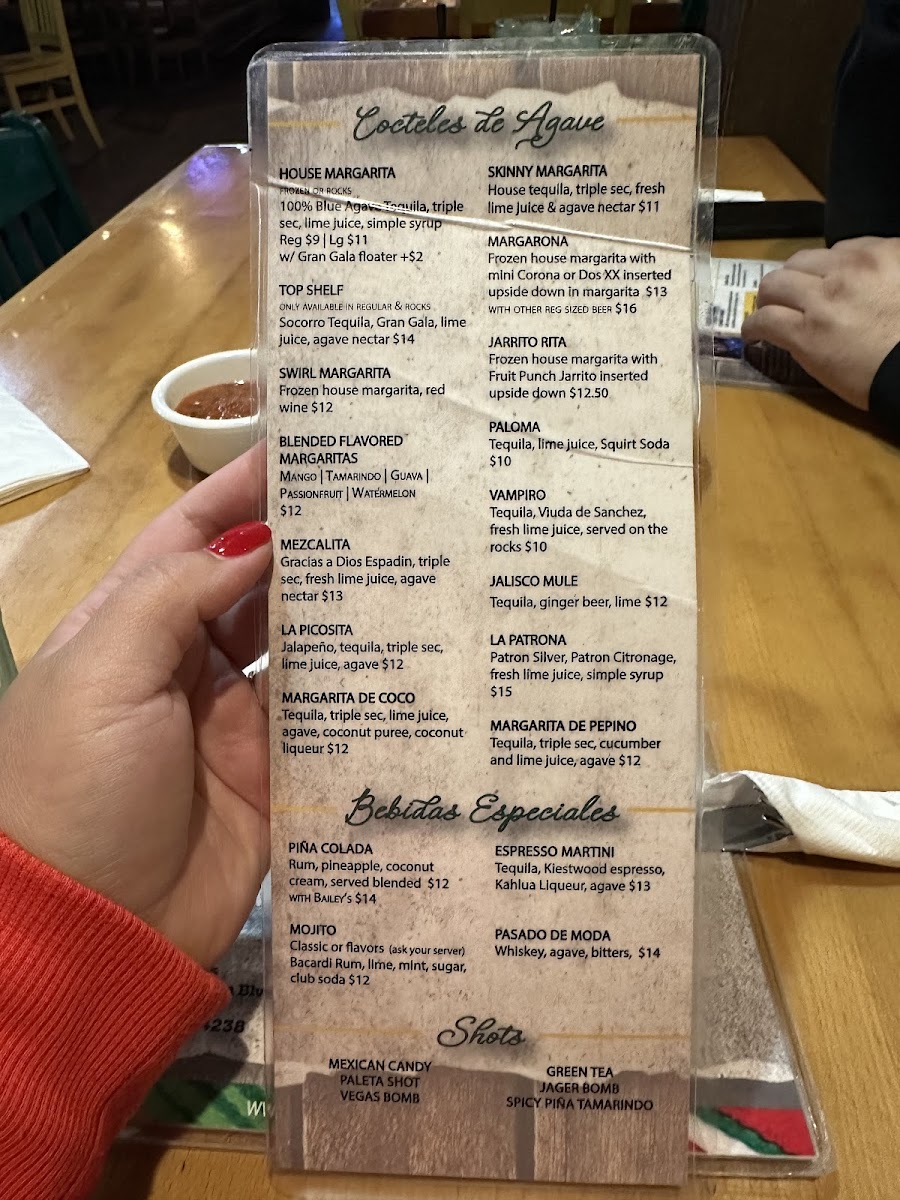 Cocteles de Agave
HOUSE MARGARITA
FROZEN OR ROCKS
100% Blue Agave Tequila, triple
sec, lime juice, simple syrup
Reg $9 | Lg $11
w/ Gran Gala floater +$2
TOP SHELF
ONLY AVAILABLE IN REGULAR & ROCKS
Socorro Tequila, Gran Gala, lime
juice, agave nectar $14
SWIRL MARGARITA
Frozen house margarita, red
wine $12
BLENDED FLAVORED
MARGARITAS
MANGO | TAMARINDO | GUAVA |
PASSIONFRUIT | WATERMELON
$12
MEZCALITA
Gracias a Dios Espadin, triple
sec, fresh lime juice, agave
nectar $13
LA PICOSITA
Jalapeño, tequila, triple sec,
lime juice, agave $12
MARGARITA DE COCO
Tequila, triple sec, lime juice,
agave, coconut puree, coconut
liqueur $12
SKINNY MARGARITA
House tequila, triple sec, fresh
lime juice & agave nectar $11
MARGARONA
Frozen house margarita with
mini Corona or Dos XX inserted
upside down in margarita $13
WITH OTHER REG SIZED BEER $16
JARRITO RITA
Frozen house margarita with
Fruit Punch Jarrito inserted
upside down $12.50
PALOMA
Tequila, lime juice, Squirt Soda
$10
VAMPIRO
Tequila, Viuda de Sanchez,
fresh lime juice, served on the
rocks $10
JALISCO MULE
Tequila, ginger beer, lime $12
LA PATRONA
Patron Silver, Patron Citronage,
fresh lime juice, simple syrup
$15
MARGARITA DE PEPINO
Tequila, triple sec, cucumber
and lime juice, agave $12
Bebidas Especiales
PIÑA COLADA
Rum, pineapple, coconut
cream, served blended $12
WITH BAILEY'S $14
MOJITO
Classic or flavors (ask your server)
Bacardi Rum, lime, mint, sugar,
club soda $12
ESPRESSO MARTINI
Tequila, Kiestwood espresso,
Kahlua Liqueur, agave $13
PASADO DE MODA
Whiskey, agave, bitters, $14
Shots
MEXICAN CANDY
PALETA SHOT
VEGAS BOMB
GREEN TEA
JAGER BOMB
SPICY PIÑA TAMARINDO
4238